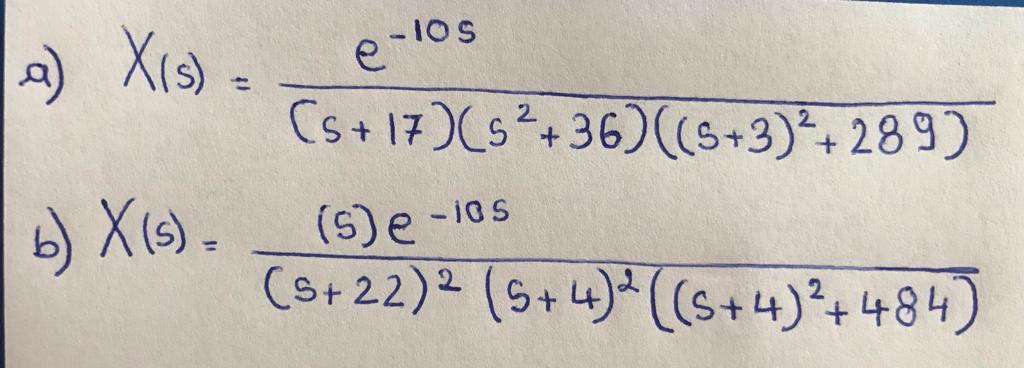 a) X(s) = e^-10s / (s+17)(s²+36)((s+3)²+289)
b) X(s) = (s)e^-10s / (s+22)² (s+4)² ((s+4)²+484)